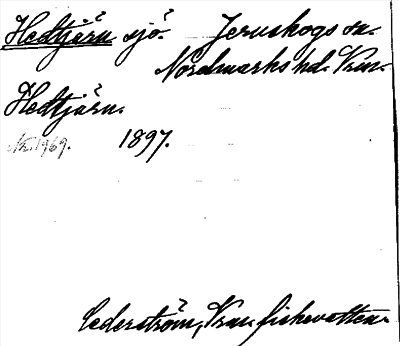 Hedtjärn sjö. Järnskogs sn.
Nordmarks hd. Vrm.
Hedtjärn.
Nr. 1969. 1897.
Cederström, Vrm. fiskevatten.